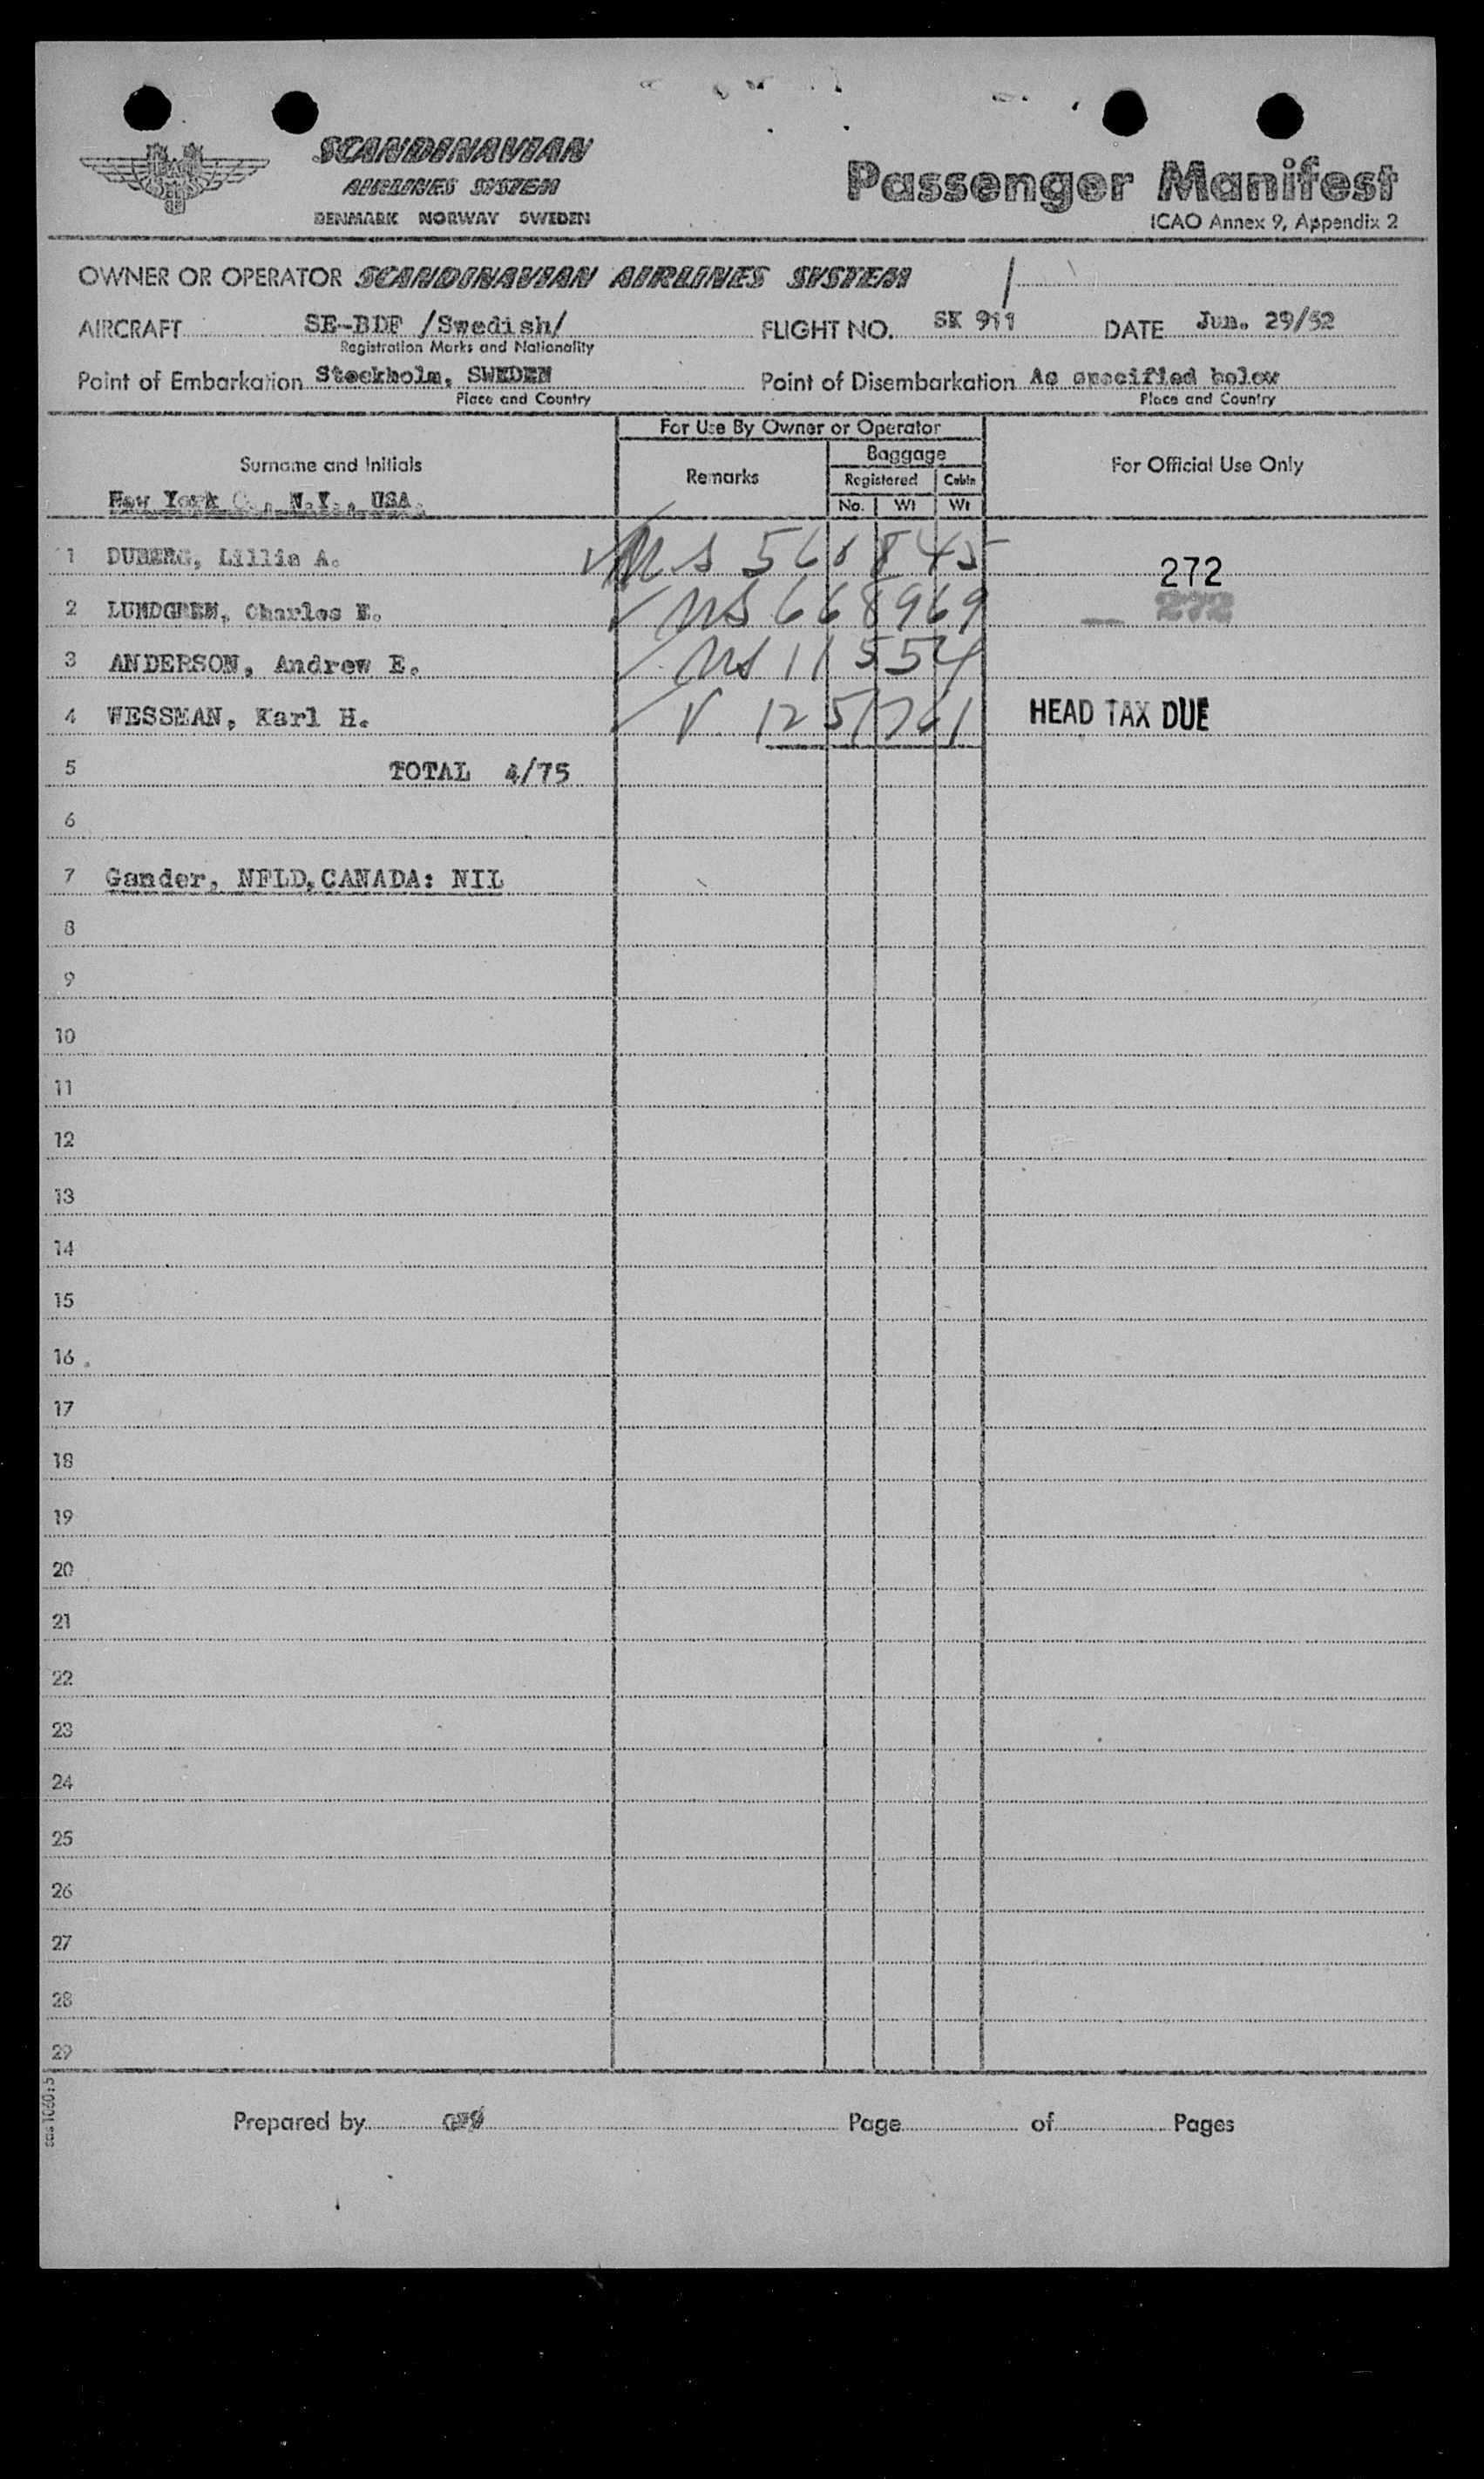 SCANDINAVIAN
AIRLINES SYSTEM
DENMARK NORWAY SWEDEN
Passenger Manifest
ICAO Annex 9, Appendix 2
OWNER OR OPERATOR SCANDINAVIAN AIRLINES SYSTEM
AIRCRAFT SE-BDF /Swedish/ FLIGHT NO. SK 911 DATE Jun. 29/52
Registration Marks and Nationality
Point of Embarkation Stockholm, SWEDEN Point of Disembarkation As specified below
Place and Country Place and Country
For Use By Owner or Operator
Surname and Initials Remarks Baggage For Official Use Only
Registered Cabin
No. Wt Wt
New York N.Y., USA.
1 DUBERG, Lillie A. 272
2 LUNDGREN, Charles E. NS 668969 272
3 ANDERSON, Andrew E. NS 11554
4 WESSMAN, Karl H. V 1251761 HEAD TAX DUE
5 TOTAL 4/75
6
7 Gander, NFLD, CANADA: NIL
8
9
10
11
12
13
14
15
16
17
18
19
20
21
22
23
24
25
26
27
28
29
sas 1060:5
Prepared by Page of Pages